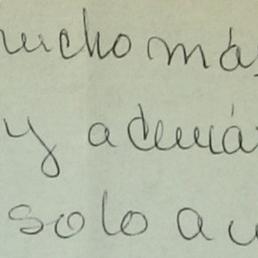 mucho más
y además
solo au